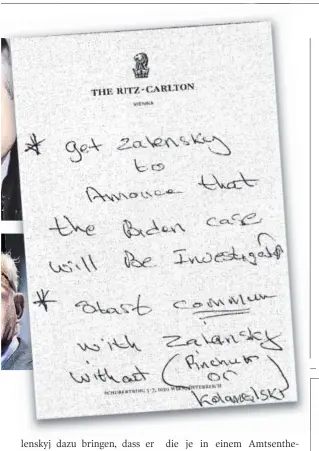 THE RITZ-CARLTON
VIENNA
* get Zalensky
to
Annouce that
the Biden case
will Be Investigated
* start commun
with Zalensky
without (Pinchuk
or
Kolamoisky
SCHUBERTRING 5-7, 1010 WIEN, ÖSTERREICH
lenskyj dazu bringen, dass er
die je in einem Amtsenthe-